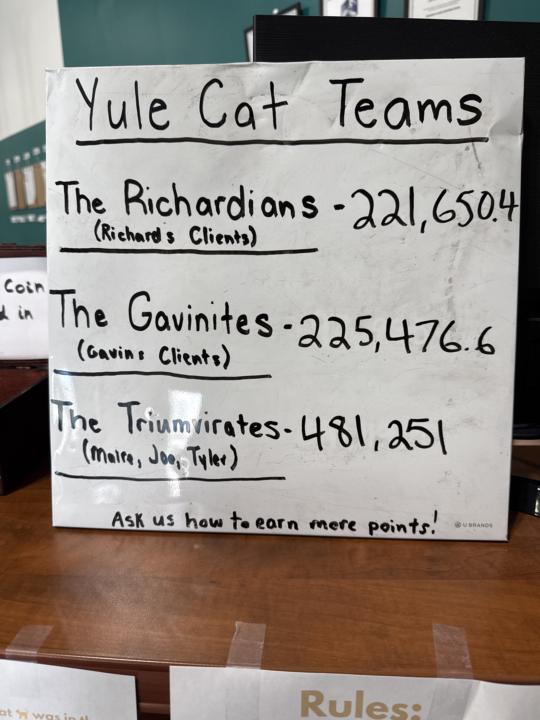 Yule Cat Teams
The Richardians - 221,650.4
(Richard's Clients)
The Gavinites - 225,476.6
(Gavins Clients)
The Triumvirates - 481,251
(Maire, Joe, Tyler)
Ask us how to earn more points!
U BRANDS
Coin
in
at was in th
Rules: